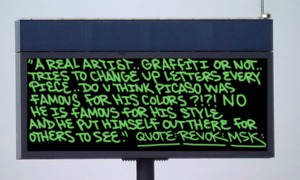 "A REAL ARTIST.. GRAFFITI OR NOT..
TRIES TO CHANGE UP LETTERS EVERY
PIECE.. DO U THINK PICASO WAS
FAMOUS FOR HIS COLORS ?!?! NO
HE IS FAMOUS FOR HIS STYLE
AND HE PUT HIMSELF OUT THERE FOR
OTHERS TO SEE." QUOTE: REVOK. MSK.